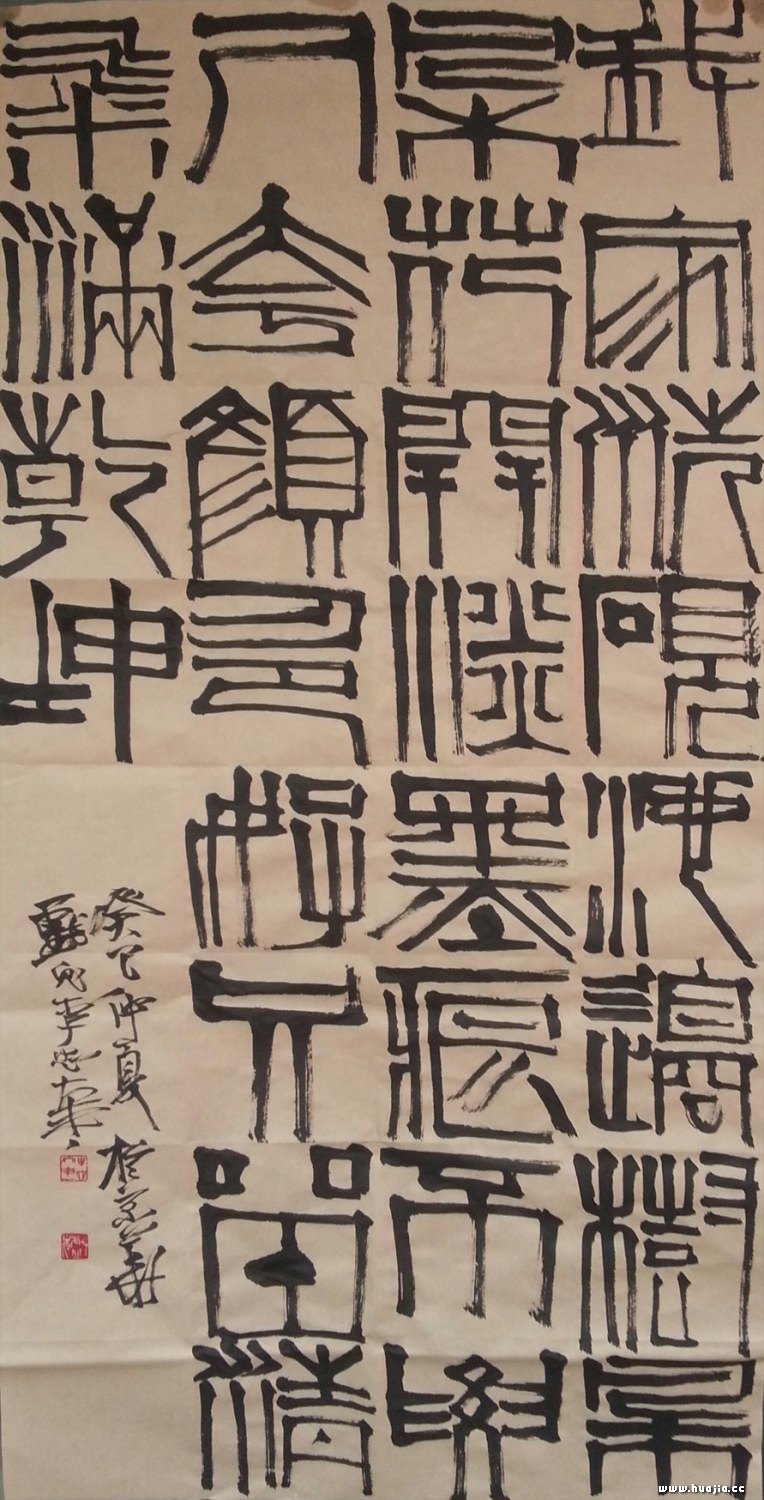 我家洗硯池邊樹朵
朵花開淡墨痕不要
人夸顏色好只留清
氣滿乾坤
癸巳仲夏於京華
www.huajia.cc